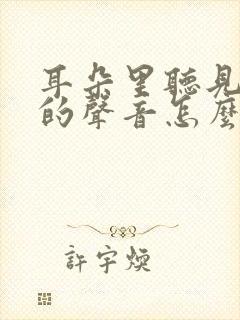 耳朵里聽見
的聲音怎麼
許宇煐